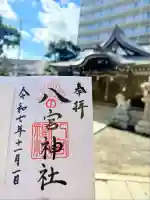 奉拝
八宮神社
令和七年十一月一日